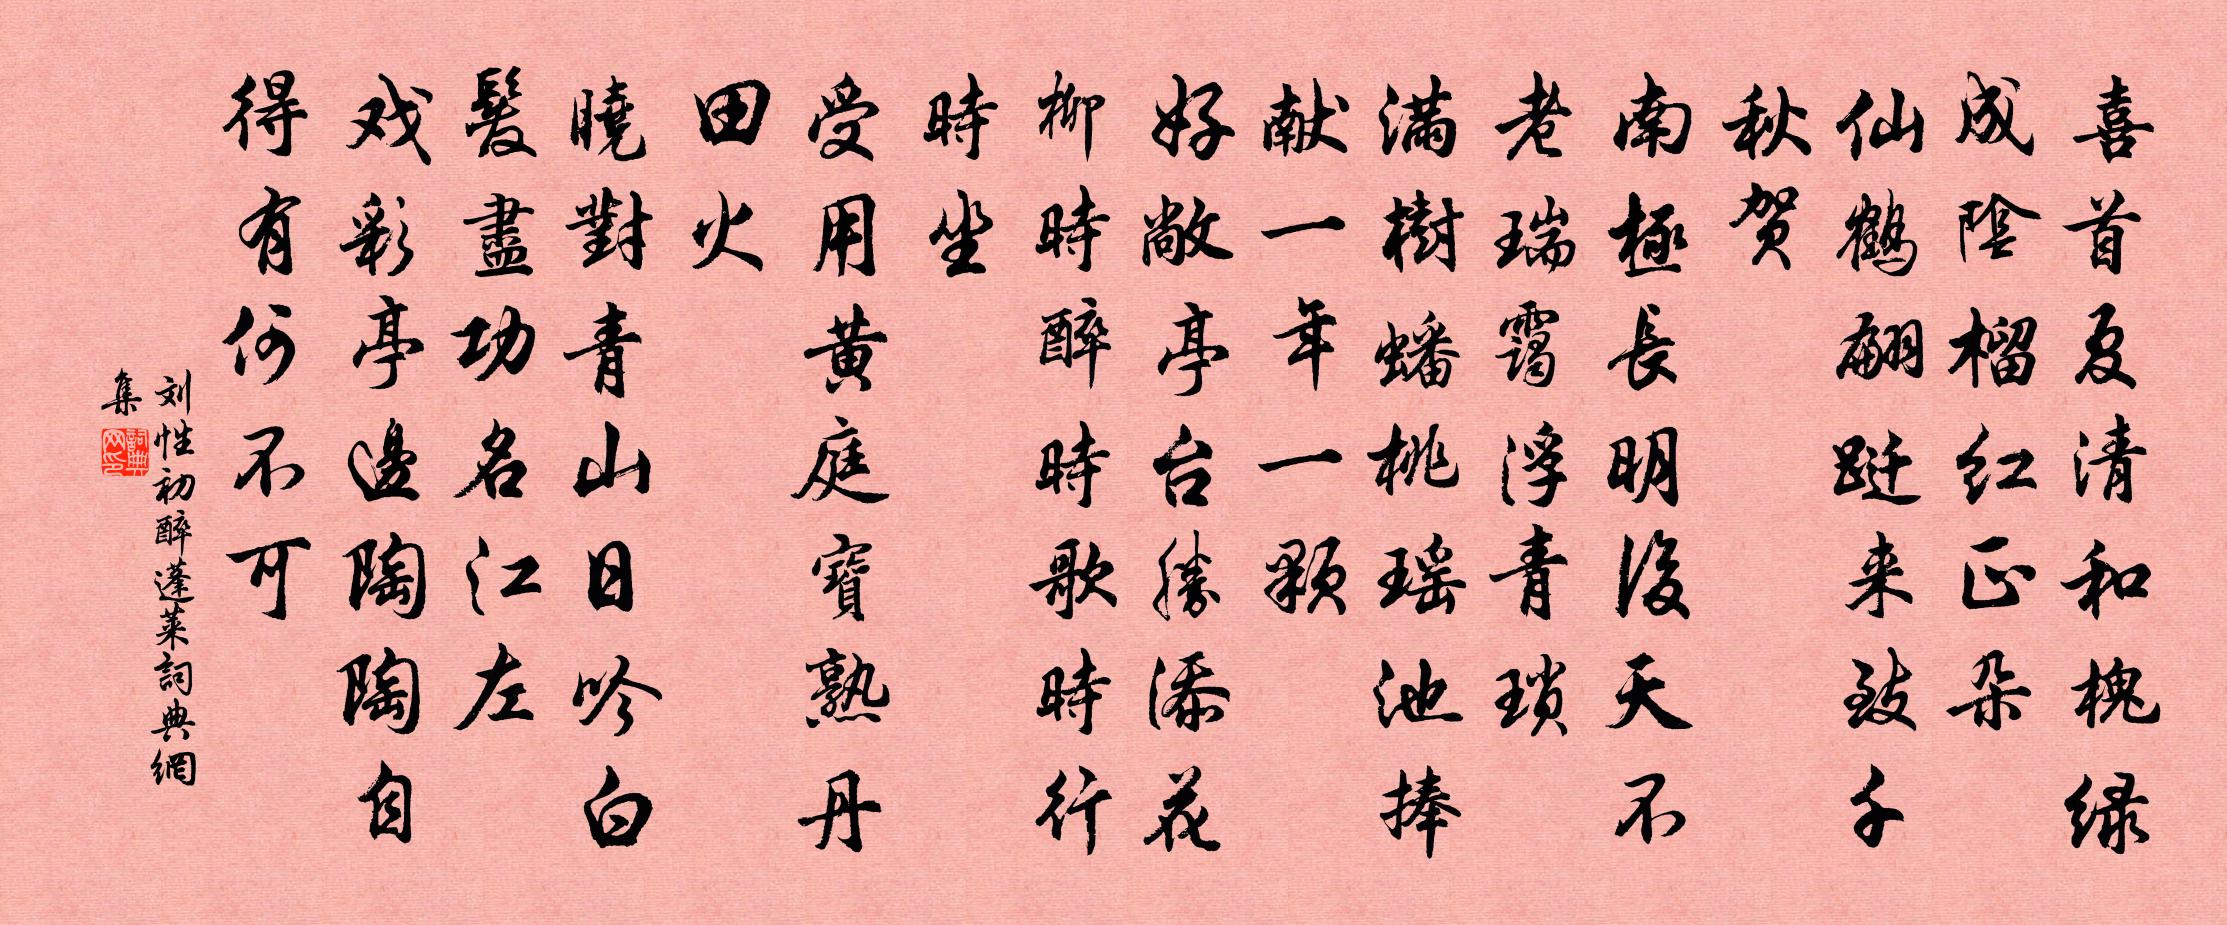 喜首夏清和槐绿
成陰榴红正朵
仙鹤翩跹来致千
秋贺
南極長明後天不
老瑞靄浮青瑣
满樹蟠桃瑶池捧
献一年一颗
好敞亭台勝添花
柳時時醉時歌時行
時坐
受用黄庭寶熟丹
田火
曉對青山日吟白
髮盡功名江左
戏彩亭邊陶陶自
得有何不可
刘性初醉蓬莱詞典網
集
詞典网印